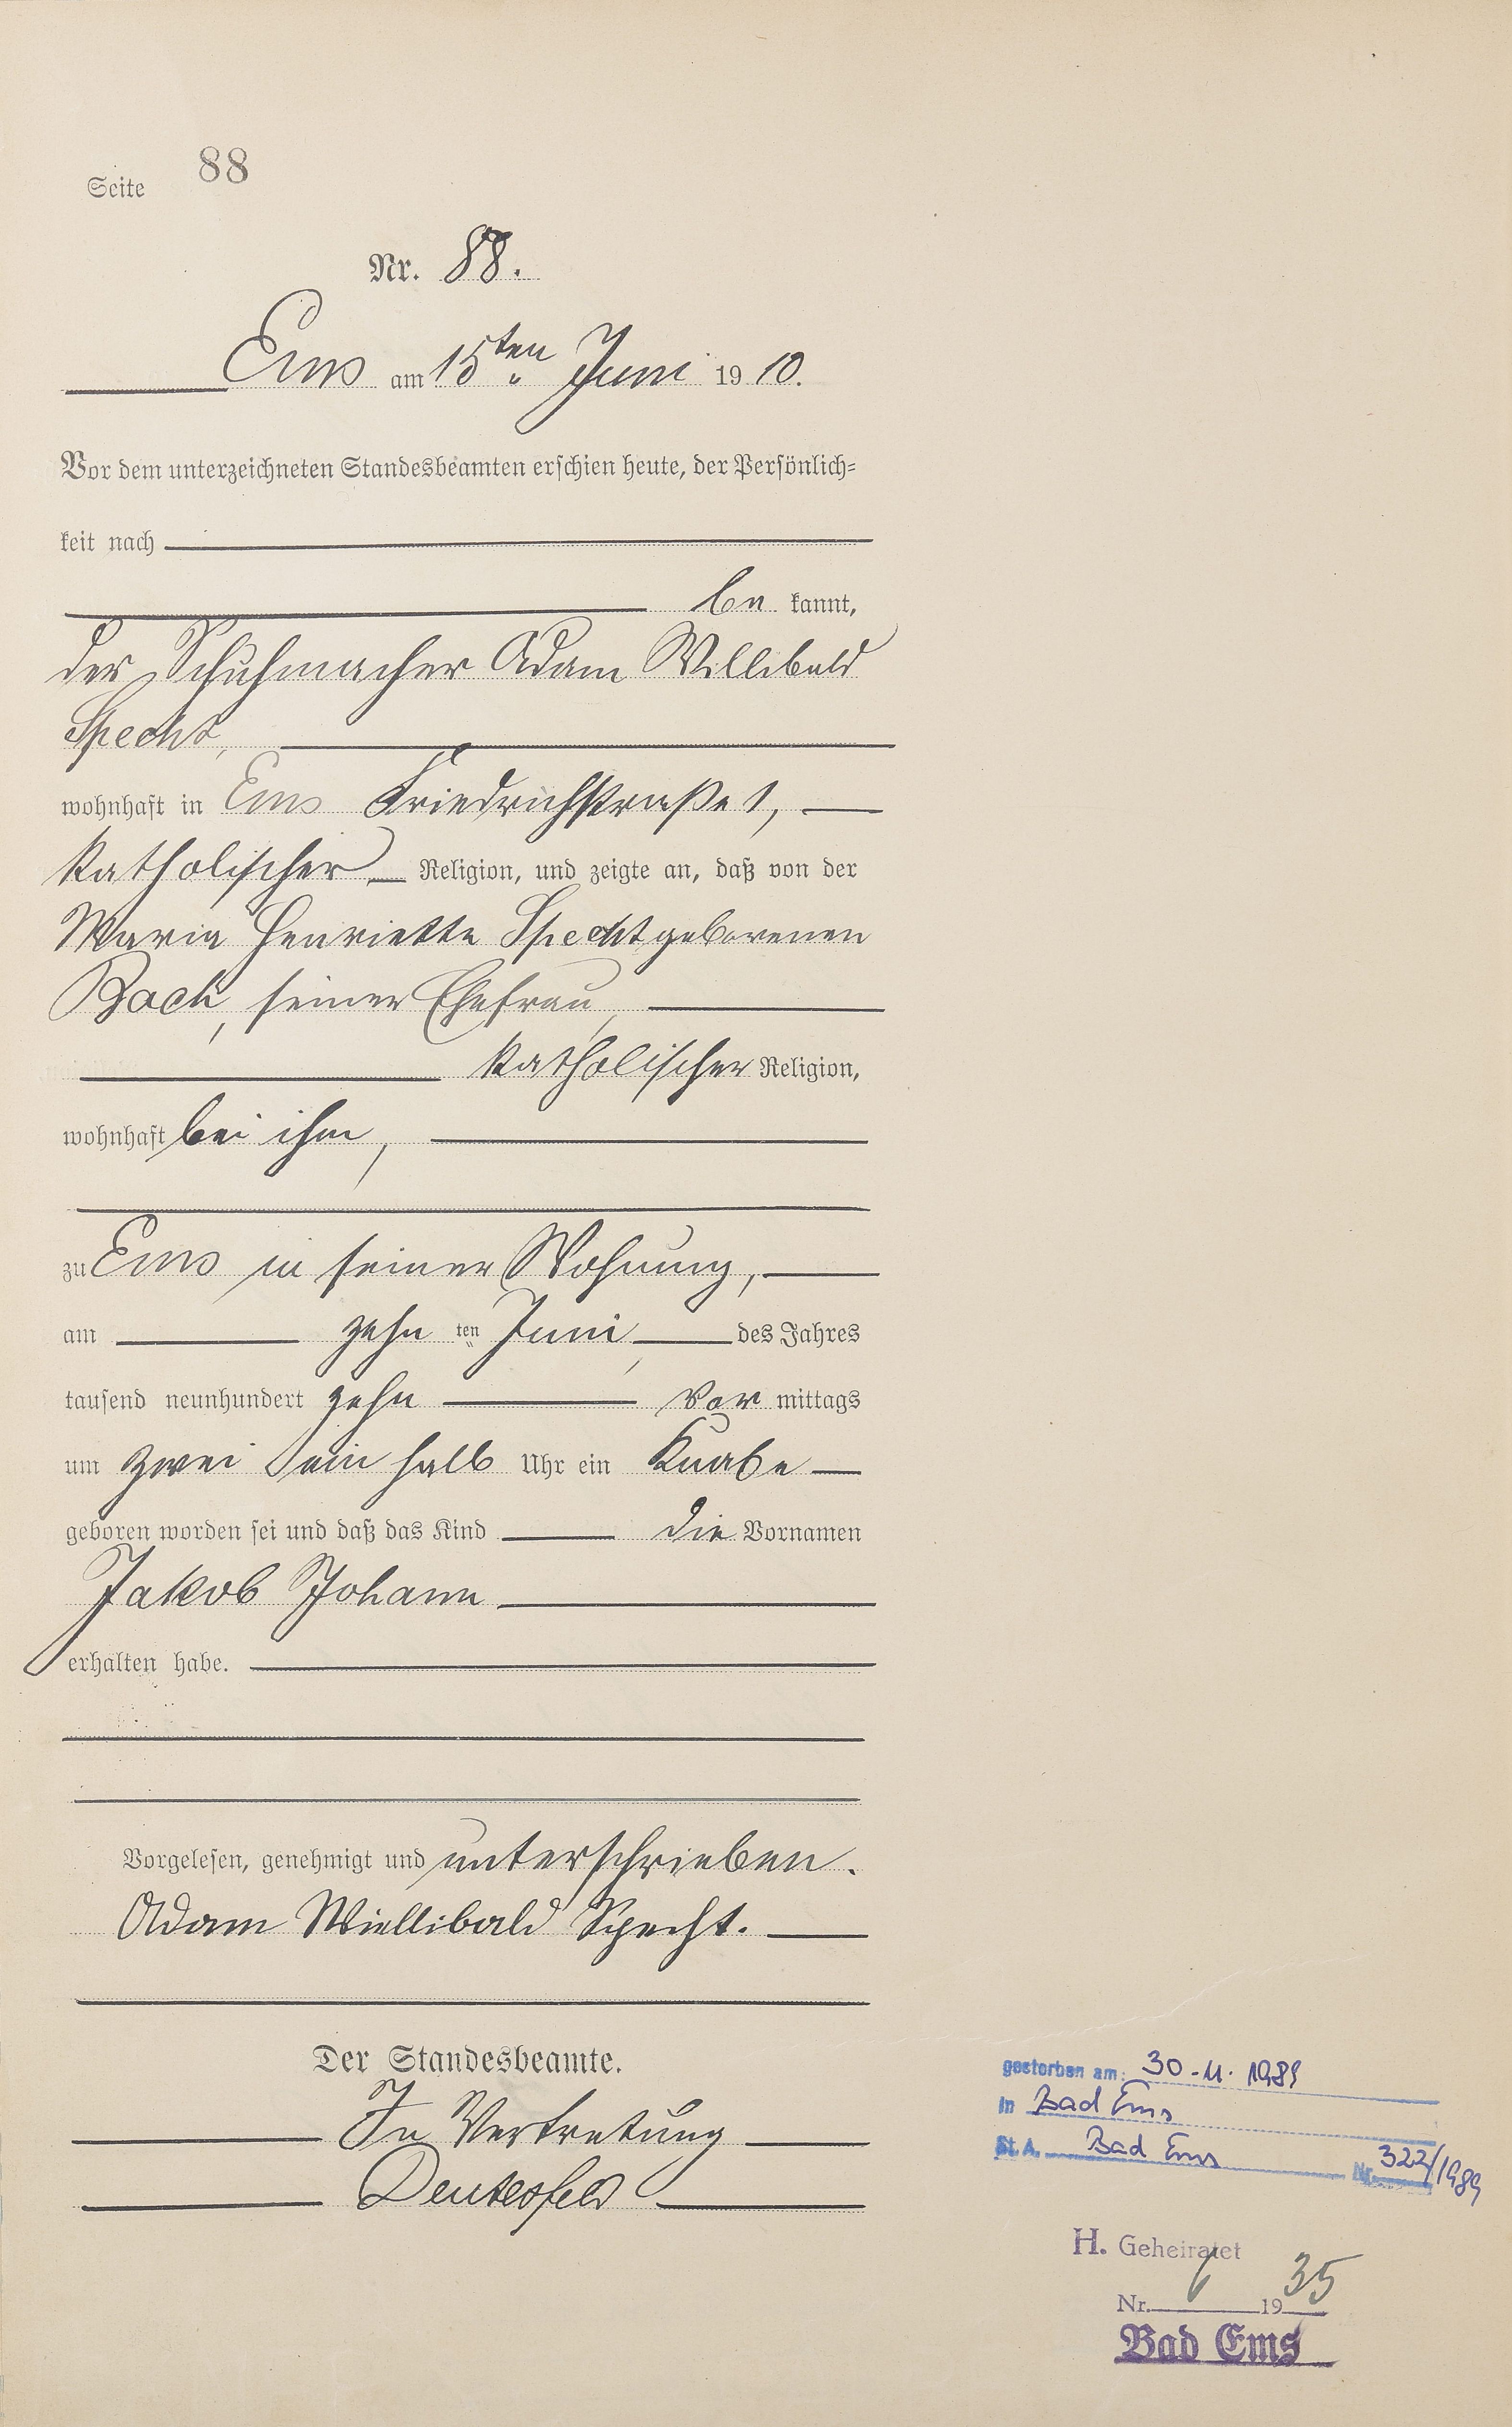 Seite 88
Nr. 88.
Ems am 15ten Juni 1910.
Vor dem unterzeichneten Standesbeamten erschien heute, der Persönlich-
keit nach
be kannt,
der Schuhmacher Adam Willibald
Specht,
wohnhaft in Ems Friedrichstraße 1,
katholischer Religion, und zeigte an, daß von der
Maria Henriette Specht geborenen
Bach, seiner Ehefrau,
katholischer Religion,
wohnhaft bei ihm,
zu Ems in seiner Wohnung,
am zehn ten Juni, des Jahres
tausend neunhundert zehn vor mittags
um zwei ein halb Uhr ein Knabe
geboren worden sei und daß das Kind die Vornamen
Jakob Johann
erhalten habe.
Vorgelesen, genehmigt und unterschrieben.
Adam Wiellibald Specht.
Der Standesbeamte.
In Vertretung
gestorben am: 30.11.1989
in Bad Ems
St. A. Bad Ems Nr. 322/1989
H. Geheiratet
Nr. 1935
Bad Ems